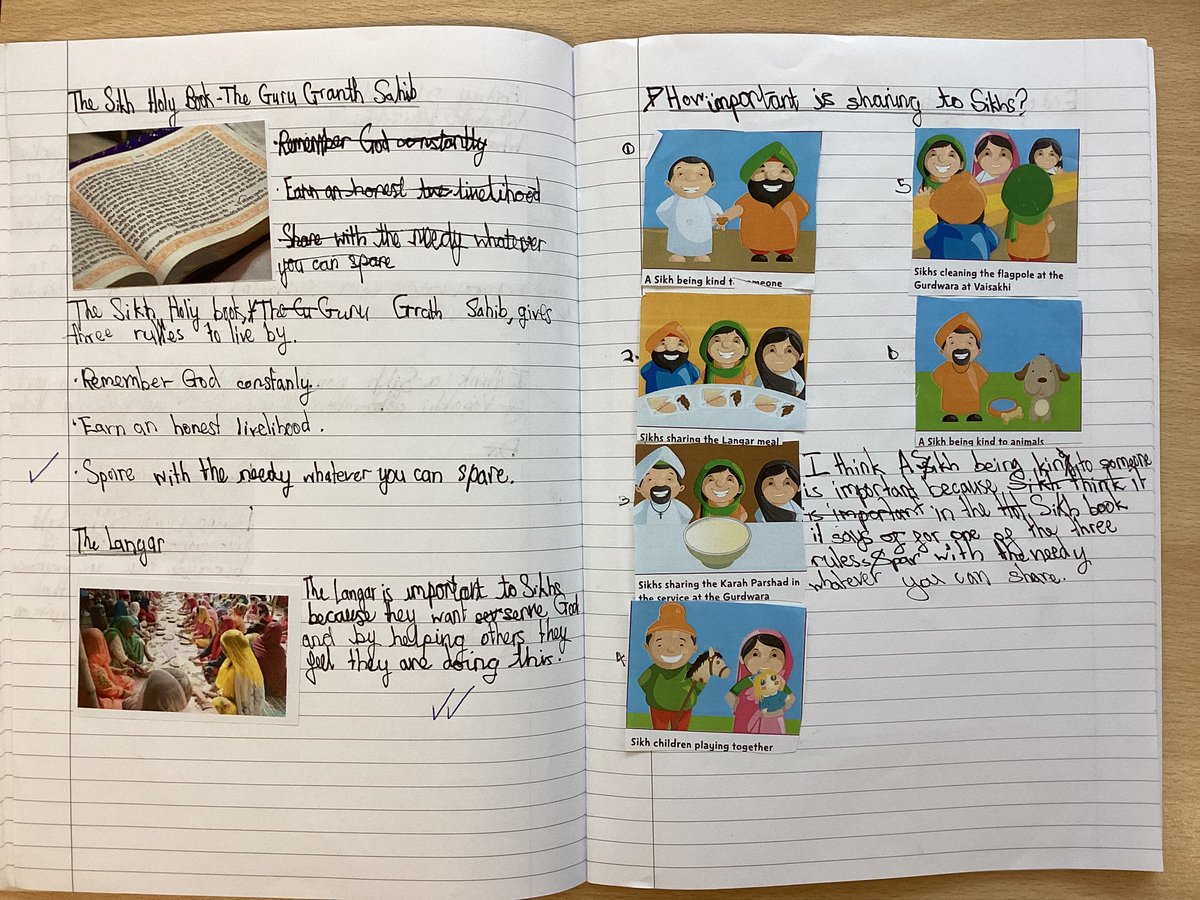 The Sikh Holy Book - The Guru Granth Sahib
· Remember God constantly
· Earn an honest livelihood
Share with the needy whatever
you can spare
The Sikh Holy book, The G Guru Grath Sahib, gives
three rulles to live by.
· Remember God constanly.
· Earn an honest livelihood.
· Spare with the needy whatever you can spare.
The Langar
The Langar is important to Sikhs
because they want serserve God
and by helping others they
feel they are doing this.
How important is sharing to Sikhs?
1
A Sikh being kind to someone
2.
Sikhs sharing the Langar meal
3
Sikhs sharing the Karah Parshad in
the service at the Gurdwara
4
Sikh children playing together
5
Sikhs cleaning the flagpole at the
Gurdwara at Vaisakhi
6
A Sikh being kind to animals
I think A Sikh being kind to someone
is important because Sikh think it
is important in the Sikh book
it says for one of the three
rules Spar with the needy
whatever you can share.